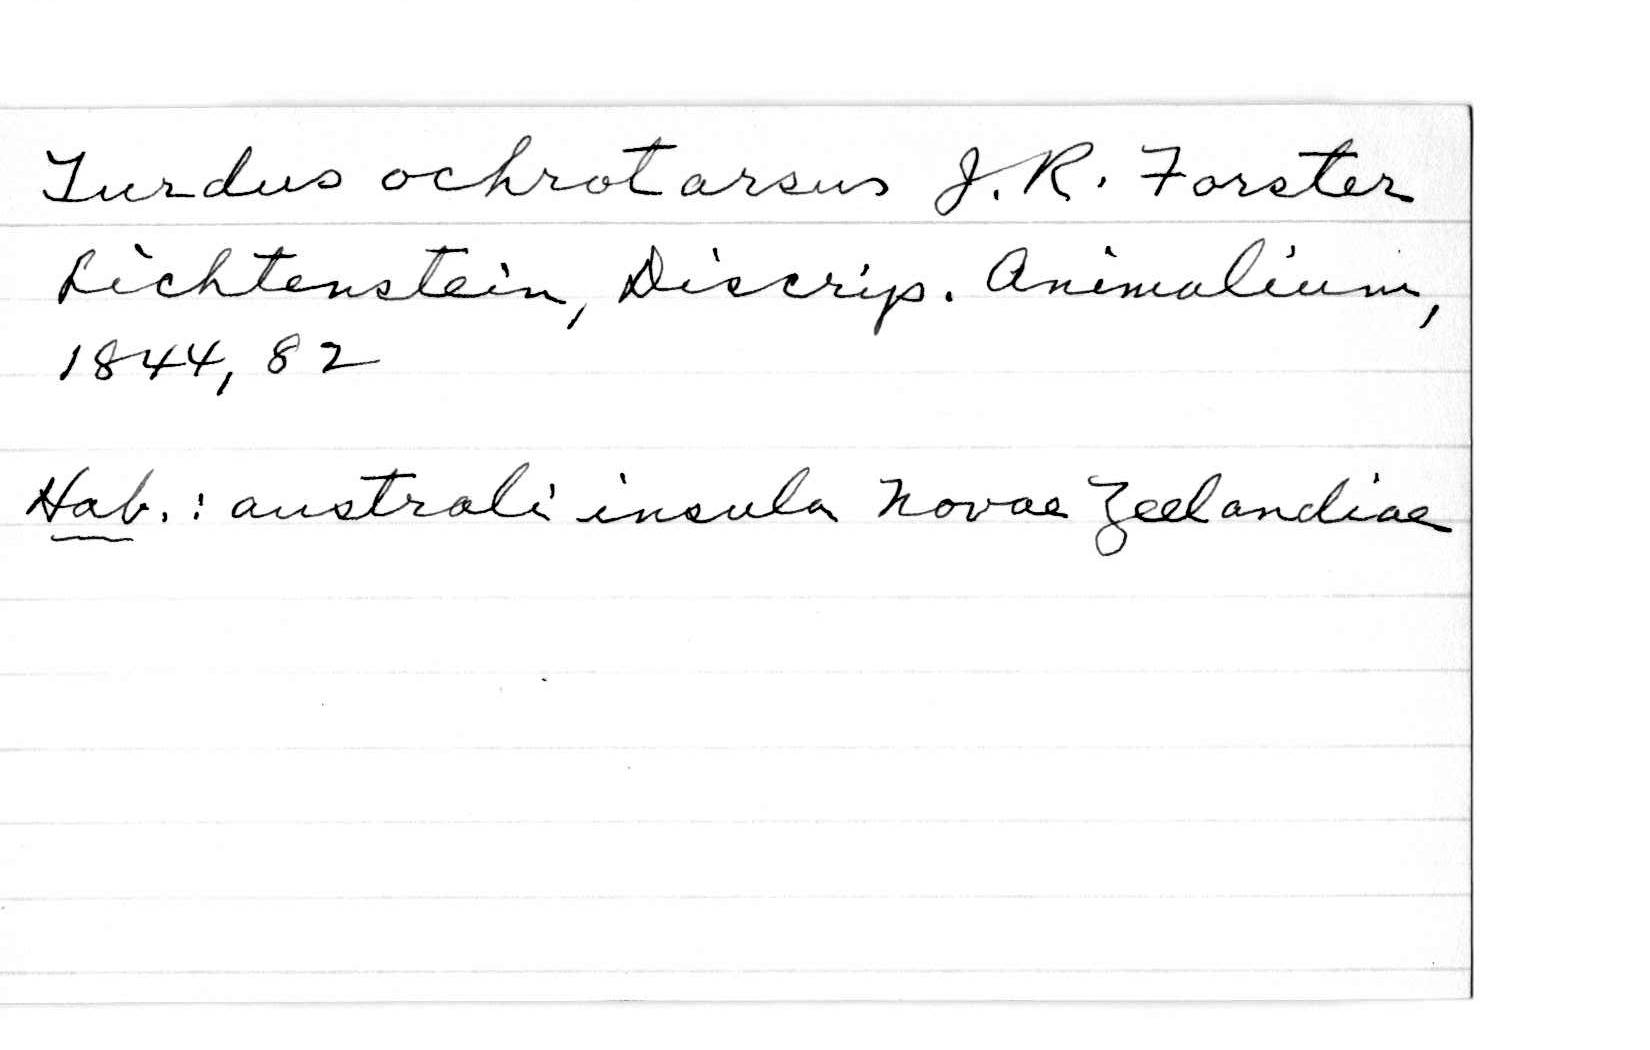 Turdus ochrotarsus J. R. Forster
Lichtenstein, Discrip. Animalium,
1844, 82
Hab. : australi insula Novae Zeelandiae